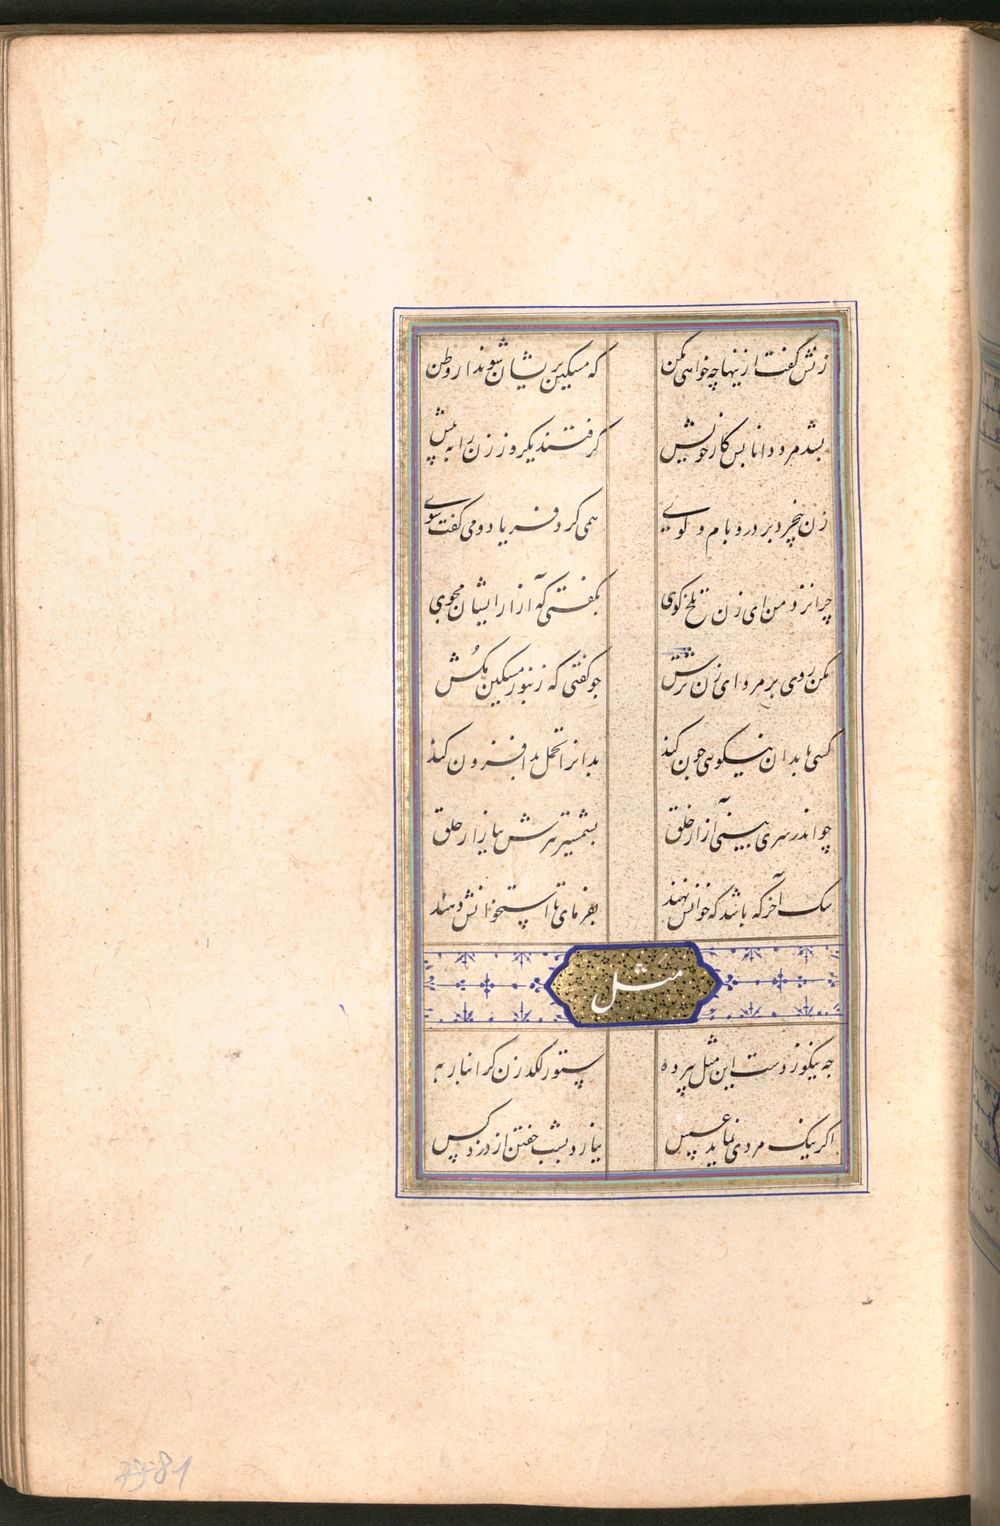 زنش گفت ازینها چه خواهی مکن که مسکین پریشان شوند از وطن
بشد مرد دانا پس کار خویش گرفتند یکروز زن را به نیش
زن بیخرد بر در و بام و کوی همی کرد فریاد و می گفت شوی
چرا نزد من ای زن تلخ گوی بگفتی که آزار ایشان مجوی
مکن روی بر مردم ای زن ترش چو گفتی که زنبور مسکین مکُش
کسی با بدان نیکویی چون کند بدانرا تحمل بد افزون کند
چو اندر سری بینی آزار خلق بشمشیر تیزش بیازار حلق
سک آخر که باشد که خوانش نهند بفرمای تا استخوانش دهند
مثل
چه نیکو زدست این مثل پیر ده ستور لگد زن گرانبار به
اگر نیک مردی نماید عسس نیارد بشب خفتن از دزد کس
81